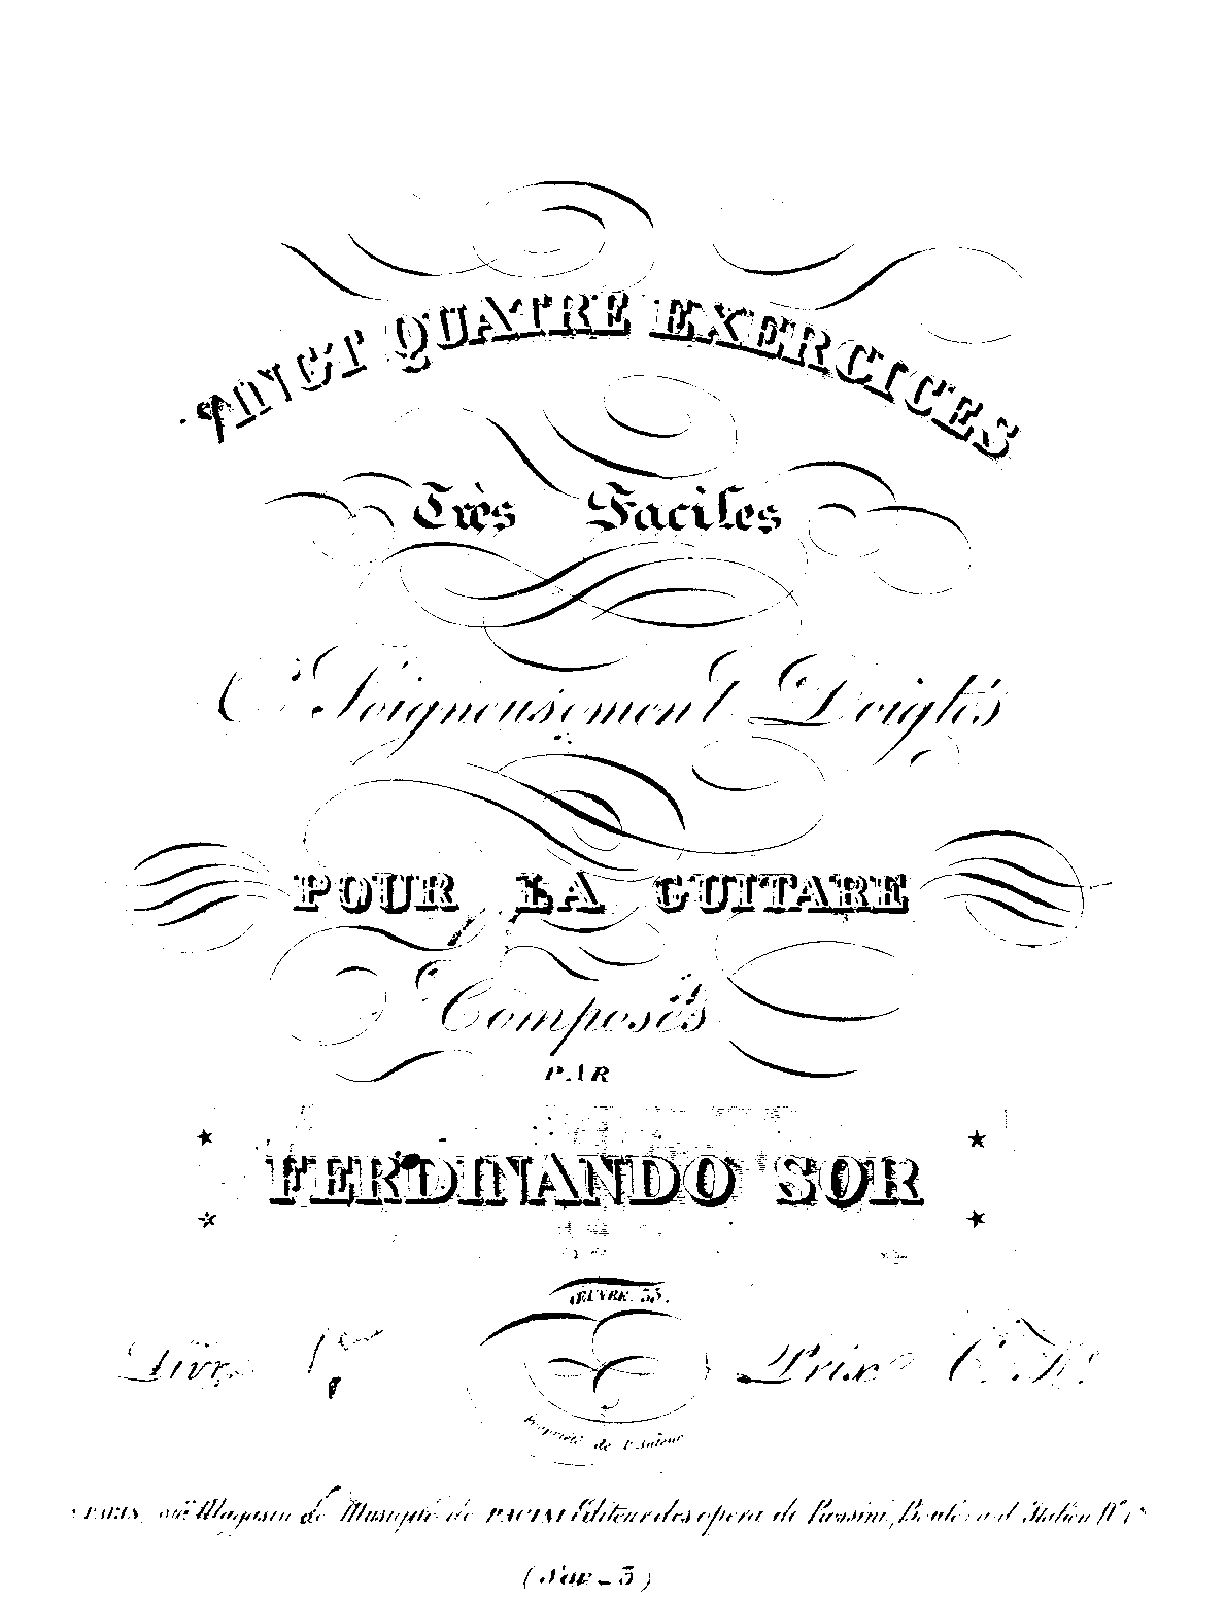 VINGT QUATRE EXERCICES
Très Faciles
Soigneusement Doigtés
POUR LA GUITARE
Composés
PAR
FERDINANDO SOR
ŒUVRE. 35.
Livre 1er Prix
Propriété de l'Auteur
PARIS, au Magasin de Musique de PACINI Editeur des opera de Rossini, Boulevard Italien Nº